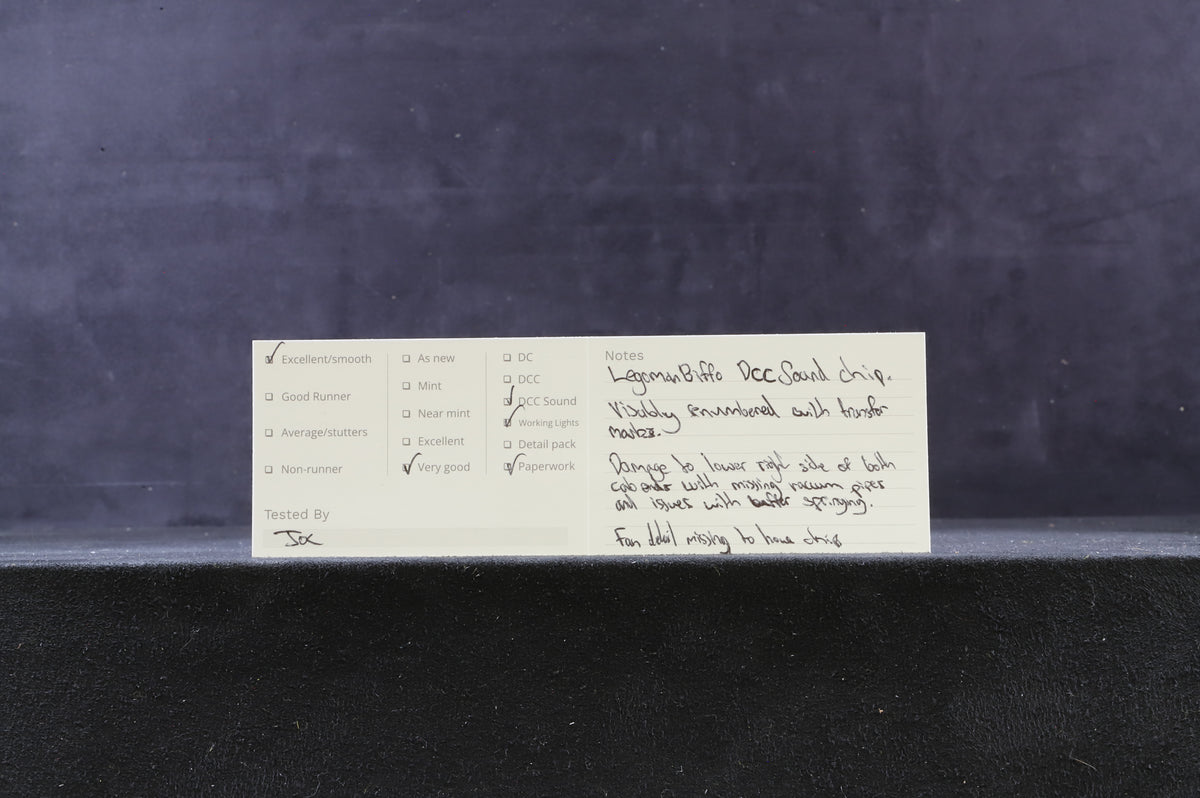 Excellent/smooth
Good Runner
Average/stutters
Non-runner
As new
Mint
Near mint
Excellent
Very good
DC
DCC
DCC Sound
Working Lights
Detail pack
Paperwork
Tested By
Notes
LegomanBiffo DCC Sound chip.
Visably with transfer
Damage to lower right side of both
cab ends with missing vacuum pipes
and issues with buffer springing.
Fan detail missing to house chip